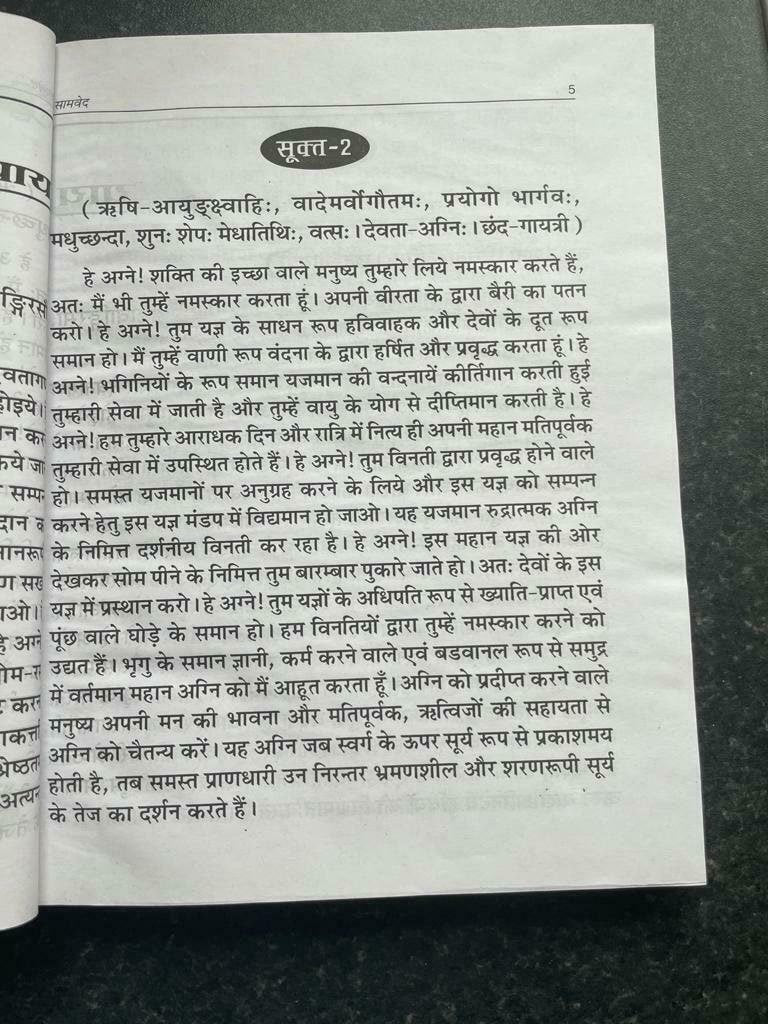 सामवेद 5
सूक्त-2
( ऋषि-आयुङ्क्ष्वाहिः, वादेमर्वोगौतमः, प्रयोगो भार्गवः,
मधुच्छन्दा, शुनः शेपः मेधातिथिः, वत्सः। देवता-अग्निः। छंद-गायत्री )
हे अग्ने! शक्ति की इच्छा वाले मनुष्य तुम्हारे लिये नमस्कार करते हैं,
अतः मैं भी तुम्हें नमस्कार करता हूं। अपनी वीरता के द्वारा बैरी का पतन
करो। हे अग्ने! तुम यज्ञ के साधन रूप हविवाहक और देवों के दूत रूप
समान हो। मैं तुम्हें वाणी रूप वंदना के द्वारा हर्षित और प्रवृद्ध करता हूं। हे
अग्ने! भगिनियों के रूप समान यजमान की वन्दनायें कीर्तिगान करती हुई
तुम्हारी सेवा में जाती है और तुम्हें वायु के योग से दीप्तिमान करती है। हे
अग्ने! हम तुम्हारे आराधक दिन और रात्रि में नित्य ही अपनी महान मतिपूर्वक
तुम्हारी सेवा में उपस्थित होते हैं। हे अग्ने! तुम विनती द्वारा प्रवृद्ध होने वाले
हो। समस्त यजमानों पर अनुग्रह करने के लिये और इस यज्ञ को सम्पन्न
करने हेतु इस यज्ञ मंडप में विद्यमान हो जाओ। यह यजमान रुद्रात्मक अग्नि
के निमित्त दर्शनीय विनती कर रहा है। हे अग्ने! इस महान यज्ञ की ओर
देखकर सोम पीने के निमित्त तुम बारम्बार पुकारे जाते हो। अतः देवों के इस
यज्ञ में प्रस्थान करो। हे अग्ने! तुम यज्ञों के अधिपति रूप से ख्याति-प्राप्त एवं
पूंछ वाले घोड़े के समान हो। हम विनतियों द्वारा तुम्हें नमस्कार करने को
उद्यत हैं। भृगु के समान ज्ञानी, कर्म करने वाले एवं बडवानल रूप से समुद्र
में वर्तमान महान अग्नि को मैं आहूत करता हूँ। अग्नि को प्रदीप्त करने वाले
मनुष्य अपनी मन की भावना और मतिपूर्वक, ऋत्विजों की सहायता से
अग्नि को चैतन्य करें। यह अग्नि जब स्वर्ग के ऊपर सूर्य रूप से प्रकाशमय
होती है, तब समस्त प्राणधारी उन निरन्तर भ्रमणशील और शरणरूपी सूर्य
के तेज का दर्शन करते हैं।